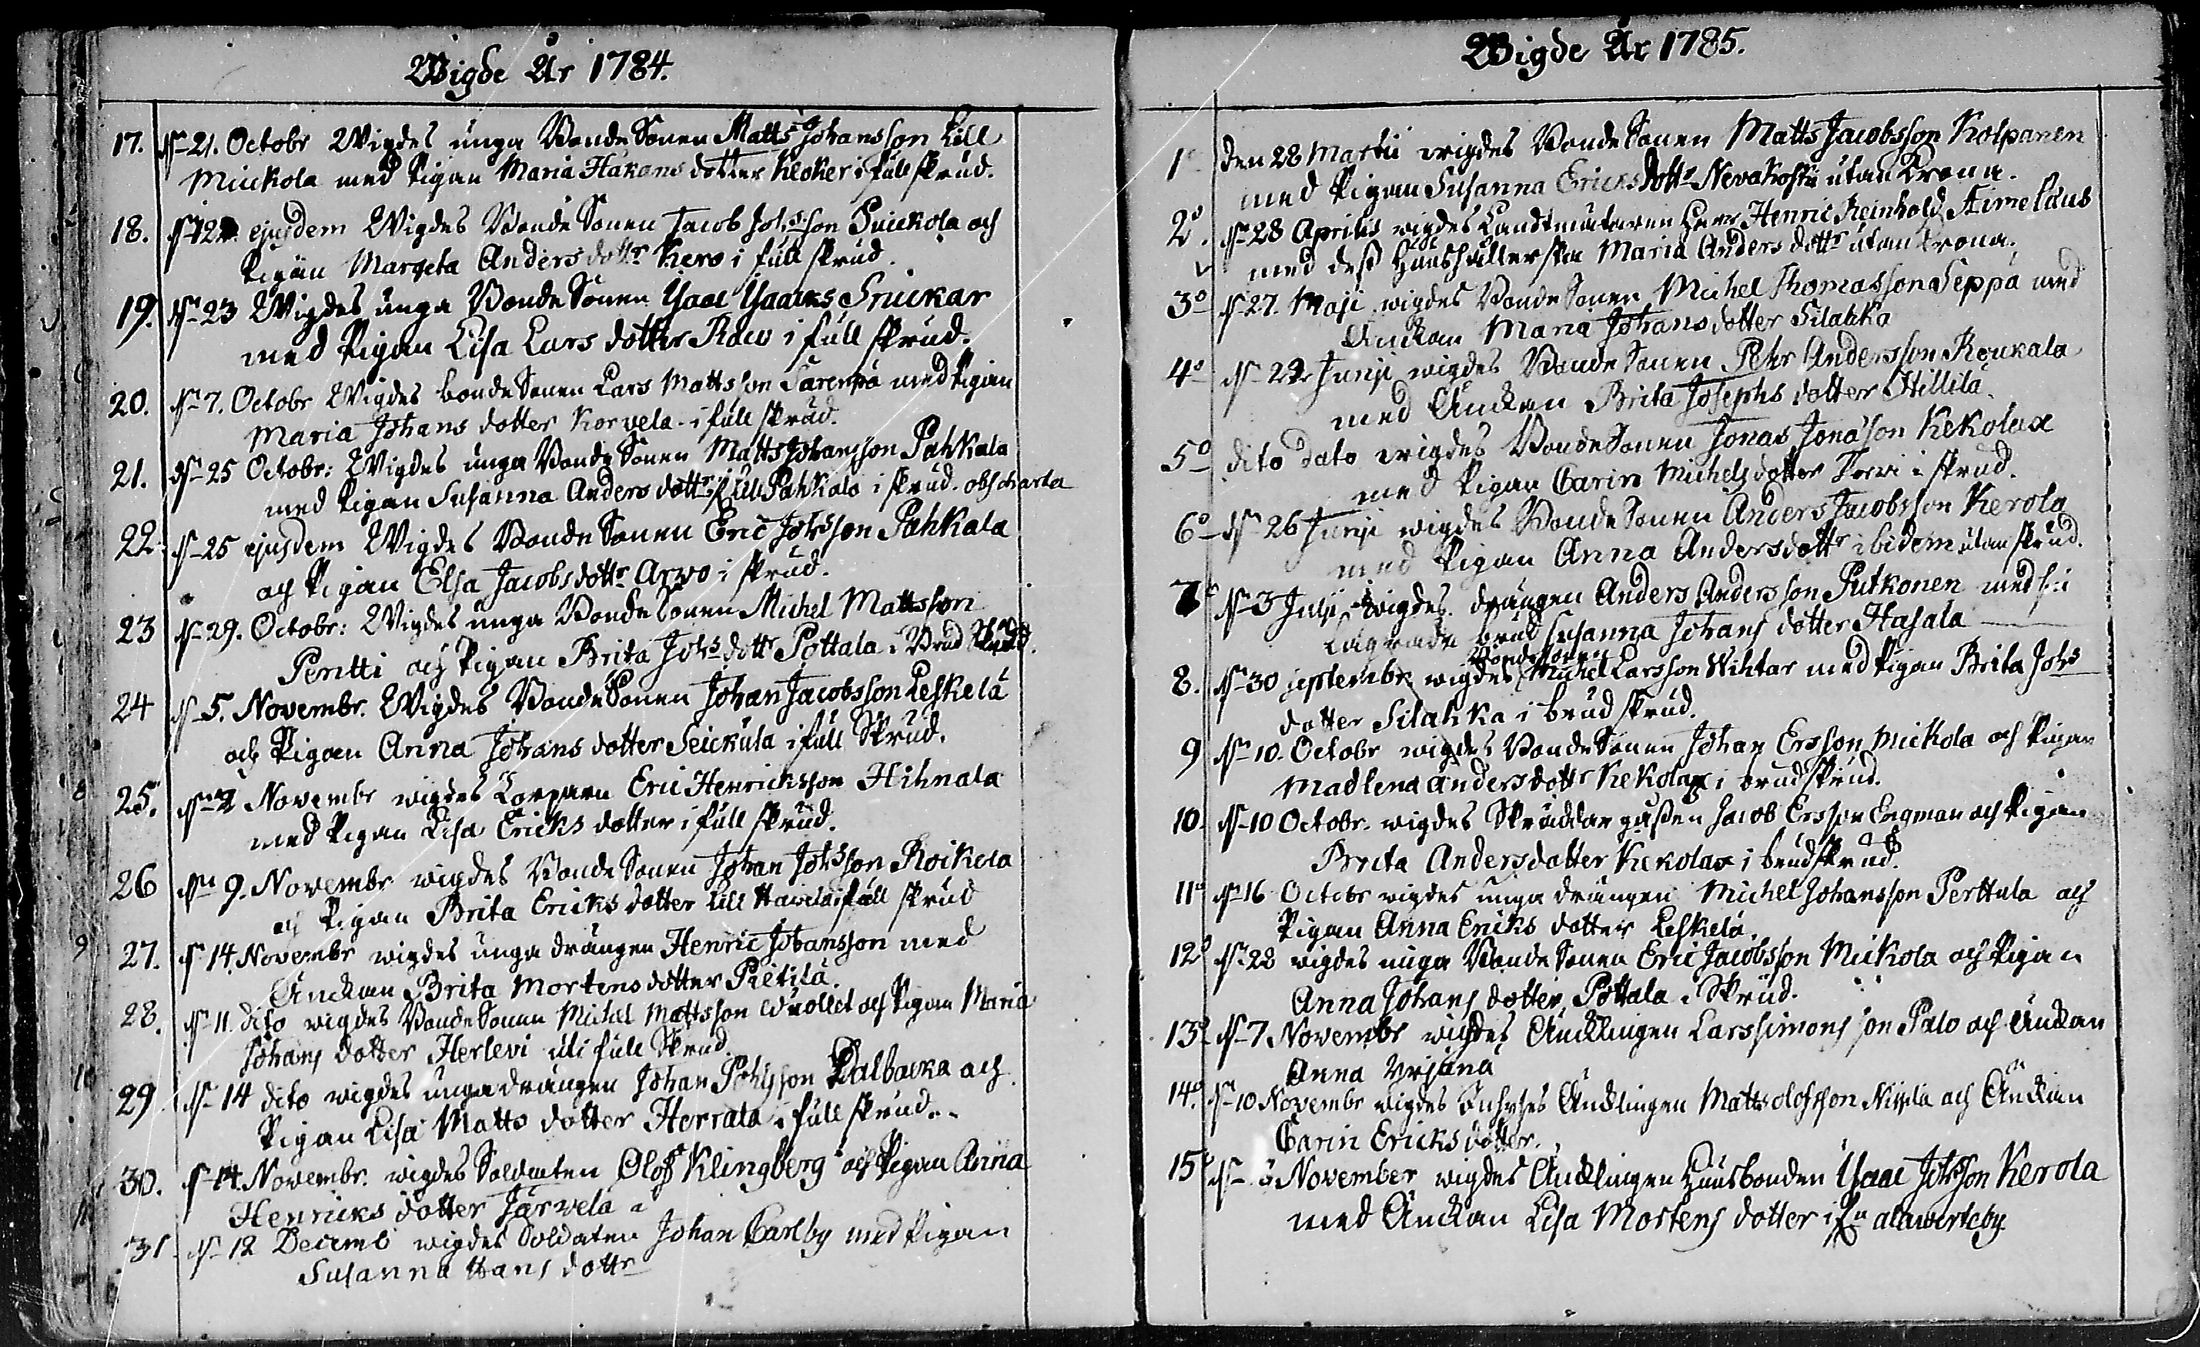 Wigde År 1784.
17. dn 21. Octobr Wigdes unga BondeSonen Matts Johansson Lill
Mickola med Pigan Maria Håkans dotter Kloker i full skrud.
18. dn 22. ejusdem Wigdes BondeSonen Jacob Johsson Puickola och
Pigan Margeta Anders dottr Kero i full skrud.
19. dn 23 Wigdes unga BondeSonen Isaac Isaacks Snickar
med Pigan Lisa Lars dotter Raw i full skrud.
20. dn 7. Octobr Wigdes bondeSonen Lars Mattsson Sarenpä med Pigan
Maria Johans dotter Korvela i full skrud.
21. dn 25 Octobr: Wigdes unga BondeSonen Matts Johansson Pahkala
med Pigan Susanna Anders dottr Lill Pahkala i skrud. obs charta
22. dn 25 ejusdem Wigdes BondeSonen Eric Johsson Pahkala
och Pigan Elsa Jacobs dottr Arvo i skrud.
23 dn 29. Octobr: Wigdes unga BondeSonen Michel Mattsson
Pentti och Pigan Brita Johs dottr Pottala i Brud Skrud.
24 dn 5. Novembr. Wigdes BondeSonen Johan Jacobsson Leskelä
och Pigan Anna Johans dotter Seickula i full Skrud.
25. dn 2 Novembr wigdes Torparen Eric Henricksson Hihnala
med Pigan Lisa Ericks dotter i full skrud.
26 dn 9. Novembr wigdes BondeSonen Johan Johsson Roikola
och Pigan Brita Ericks dotter Lill Havela i full skrud
27. dn 14. Novembr wigdes unga drängen Henric Johansson med
Änckan Brita Mortens dotter Pietilä.
28. dn 11. dito wigdes BondeSonen Michel Mattsson och Pigan Maria
Johans dotter Herlevi uti full Skrud.
29 dn 14 dito wigdes unga drängen Johan Johsson Dalbacka och
Pigan Lisa Matts dotter Herrala i full skrud.
30. dn 14. Novembr. wigdes Soldaten Olof Klingberg och Pigan Anna
Henricks dotter Järvela
31 dn 12 Decemb wigdes Soldaten Johan Carlby med Pigan
Susanna Hans dottr
Wigde År 1785.
1o den 28 Martii wigdes BondeSonen Matts Jacobsson Kolpanen
med Pigan Susanna Ericks dottr Nevakoski utan Krona.
2o. dn 28 Aprilis wigdes Landtmätaren Herr Henric Reinhold Aimelæus
med dess Hushållerska Maria Anders dottr utan Krona.
3o dn 27. Maji wigdes BondeSonen Michel Thomasson Seppä med
Änckan Maria Johans dotter Silahka
4o dn 22 Junji wigdes BondeSonen Pehr Andersson Roukala
med Änckan Brita Josephs dotter Hillilä.
5o dito dato wigdes BondeSonen Jonas Jonasson Kekolax
med Pigan Carin Michels dotter Torvi i skrud.
6o dn 26 Junji wigdes BondeSonen Anders Jacobsson Kerola
med Pigan Anna Anders dottr ibidem utan skrud.
7o dn 3 Julji wigdes drängen Anders Andersson Putkonen med sin
Lägrade brud Susanna Johans dotter Hasala
8. dn 30 septembr wigdes BondeSonen Michel Larsson Wihtar med Pigan Brita Johs
dotter Silahka i brud skrud.
9 dn 10. Octobr wigdes BondeSonen Johan Ersson Mickola och Pigan
Madlena Anders dottr Kekolax i brudskrud.
10. dn 10 Octobr. wigdes Skräddar gesellen Jacob Ersson Engman och Pigan
Brita Anders dotter Kekolax i brudskrud.
11o dn 16 Octobr wigdes unga drängen Michel Johansson Perttula och
Pigan Anna Ericks dotter Leskelä.
12o dn 22 wigdes unga BondeSonen Eric Jacobsson Mickola och Pigan
Anna Johans dotter Pottala i Skrud.
13o dn 7 Novembr wigdes Äncklingen Lars Simonsson Palo och Änckan
Anna Yrjänä
14o. dn 10 Novembr wigdes Inhyses Äncklingen Matts Olofsson Niskela och Änckan
Carin Ericks dotter.
15 dn November wigdes Äncklingen Husbonden Isaac Johsson Kerola
med Änckan Lisa Mortens dotter ifrån alaweteby